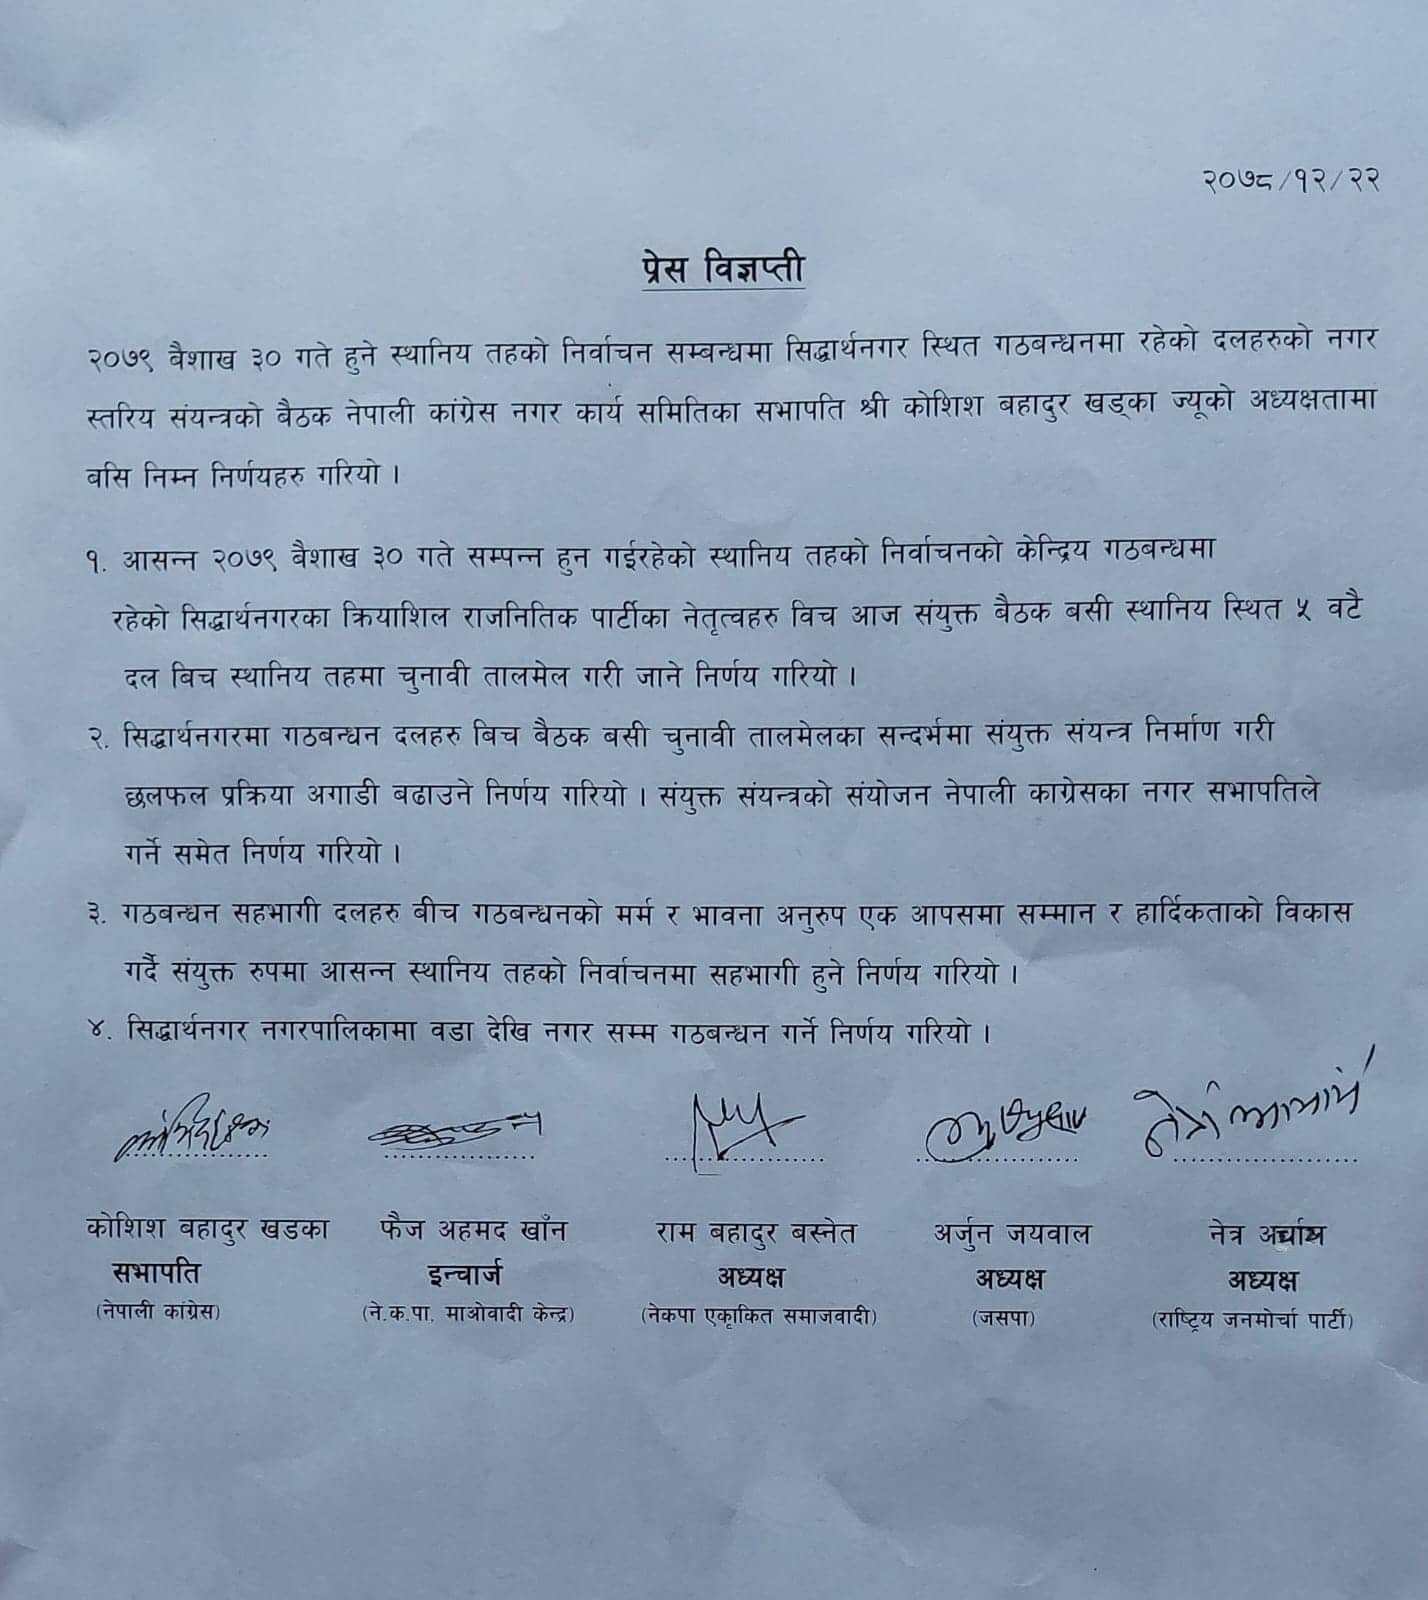 २०७८/१२/२२
प्रेस विज्ञप्ती
२०७९ बैशाख ३० गते हुने स्थानिय तहको निर्वाचन सम्बन्धमा सिद्धार्थनगर स्थित गठबन्धनमा रहेको दलहरुको नगर
स्तरिय संयन्त्रको बैठक नेपाली कांग्रेस नगर कार्य समितिका सभापति श्री कोशिश बहादुर खड्का ज्यूको अध्यक्षतामा
बसि निम्न निर्णयहरु गरियो ।
१. आसन्न २०७९ बैशाख ३० गते सम्पन्न हुन गईरहेको स्थानिय तहको निर्वाचनको केन्द्रिय गठबन्धमा
रहेको सिद्धार्थनगरका क्रियाशिल राजनितिक पार्टीका नेतृत्वहरु विच आज संयुक्त बैठक बसी स्थानिय स्थित ५ वटै
दल बिच स्थानिय तहमा चुनावी तालमेल गरी जाने निर्णय गरियो ।
२. सिद्धार्थनगरमा गठबन्धन दलहरु बिच बैठक बसी चुनावी तालमेलका सन्दर्भमा संयुक्त संयन्त्र निर्माण गरी
छलफल प्रक्रिया अगाडी बढाउने निर्णय गरियो । संयुक्त संयन्त्रको संयोजन नेपाली काग्रेसका नगर सभापतिले
गर्ने समेत निर्णय गरियो ।
३. गठबन्धन सहभागी दलहरु बीच गठबन्धनको मर्म र भावना अनुरुप एक आपसमा सम्मान र हार्दिकताको विकास
गर्दै संयुक्त रुपमा आसन्न स्थानिय तहको निर्वाचनमा सहभागी हुने निर्णय गरियो ।
४. सिद्धार्थनगर नगरपालिकामा वडा देखि नगर सम्म गठबन्धन गर्ने निर्णय गरियो ।
कोशिश बहादुर खडका फैज अहमद खाँन राम बहादुर बस्नेत अर्जुन जयवाल नेत्र
सभापति इन्चार्ज अध्यक्ष अध्यक्ष अध्यक्ष
(नेपाली कांग्रेस) (ने.क.पा. माओवादी केन्द्र) (नेकपा एकृाकित समाजवादी) (जसपा) (राष्ट्रिय जनमोर्चा पार्टी)